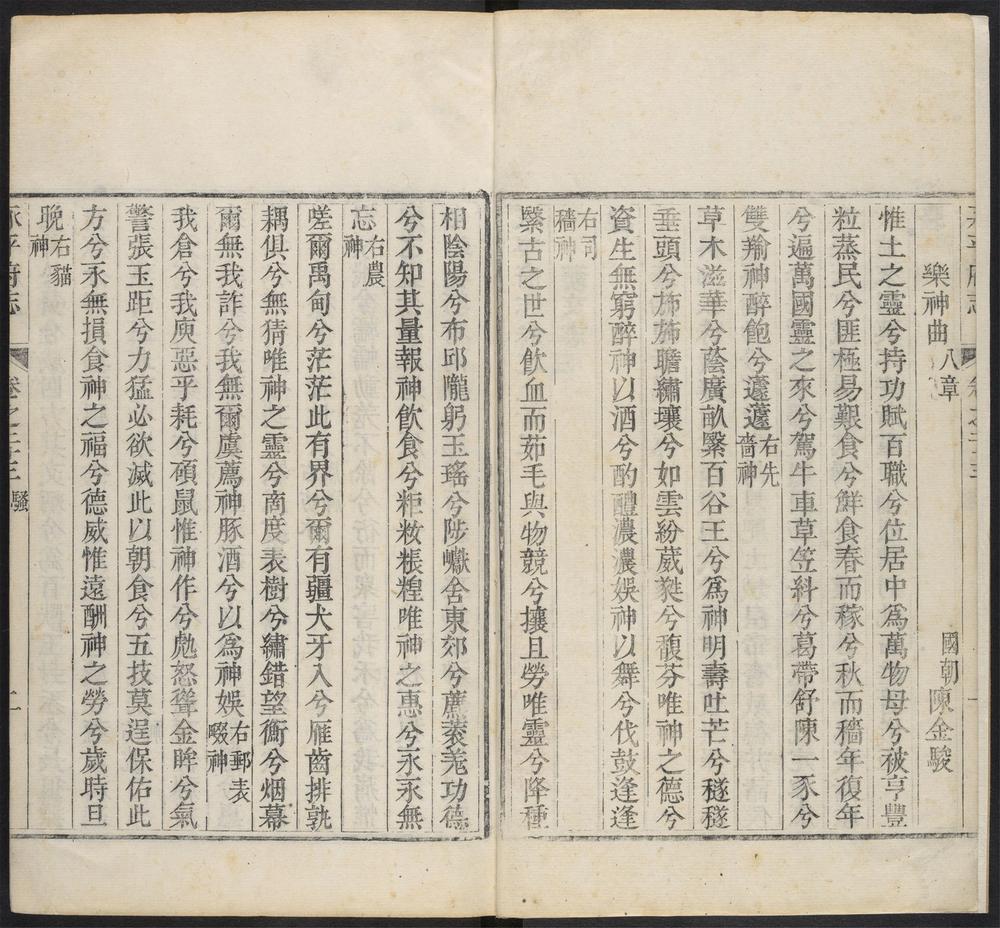 樂神曲八章 國朝陳金駿
惟土之靈兮持功賦百職兮位居中為萬物母兮被亨豐
粒蒸民兮匪極易艱食兮鮮食春而稼兮秋而穡年復年
兮遍萬國靈之來兮駕牛車草笠糾兮葛帶舒陳一豕兮
雙羭神醉飽兮蘧蘧右先嗇神
草木滋華兮蔭廣畝繄百谷王兮為神明壽吐芒兮穟穟
垂頭兮旆旆瞻繡壤兮如雲紛葳蕤兮馥芬唯神之德兮
資生無窮醉神以酒兮酌醴濃濃娛神以舞兮伐鼓逢逢
右司穡神
繄古之世兮飲血而茹毛與物競兮攘且勞唯靈兮降種
相陰陽兮布邱隴躬玉瑤兮陟巘舍東郊兮藨蔉羗功德
兮不知其量報神飲食兮粔籹粻餭唯神之惠兮永永無
忘右農神
嗟爾禹甸兮茫茫此有界兮爾有疆犬牙入兮雁齒排孰
耦俱兮無猜唯神之靈兮南度表樹兮繡錯望衡兮烟幕
爾無我詐兮我無爾虞薦神豚酒兮以為神娛右郵表畷神
我倉兮我庾惡乎耗兮碩鼠惟神作兮虺怒聳金眸兮氣
警張玉距兮力猛必欲滅此以朝食兮五技莫逞保佑此
方兮永無損食神之福兮德威惟遠酬神之勞兮歲時旦
晚右貓神
永平府志 卷之二十三 騷 二